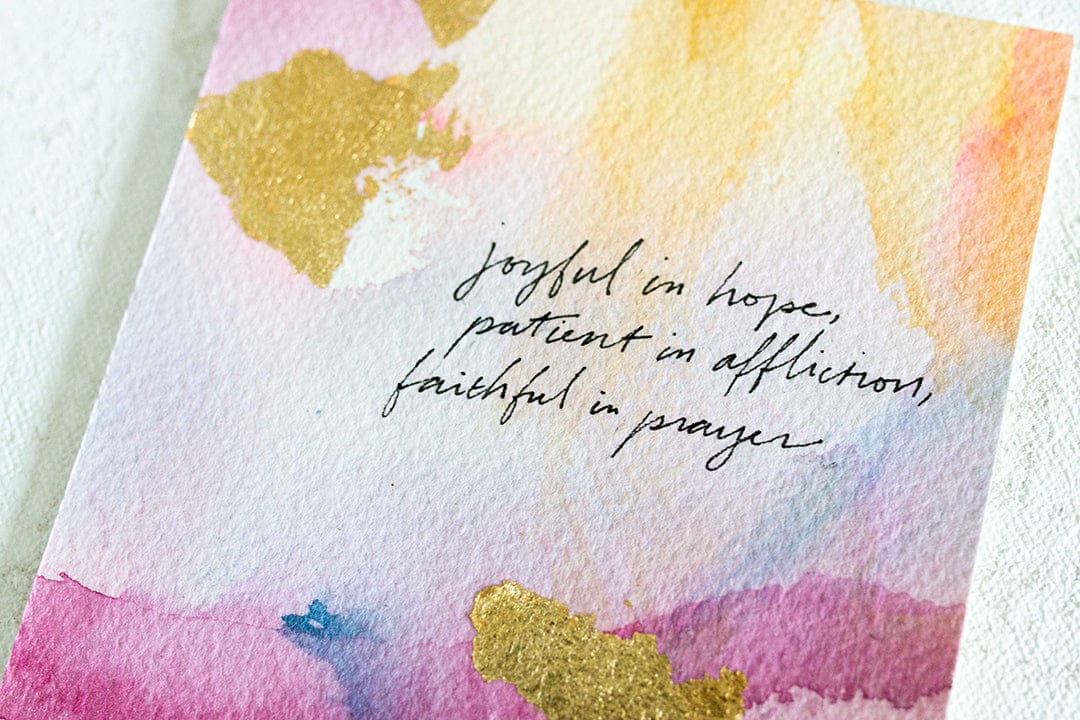 joyful in hope,
patient in affliction,
faithful in prayer